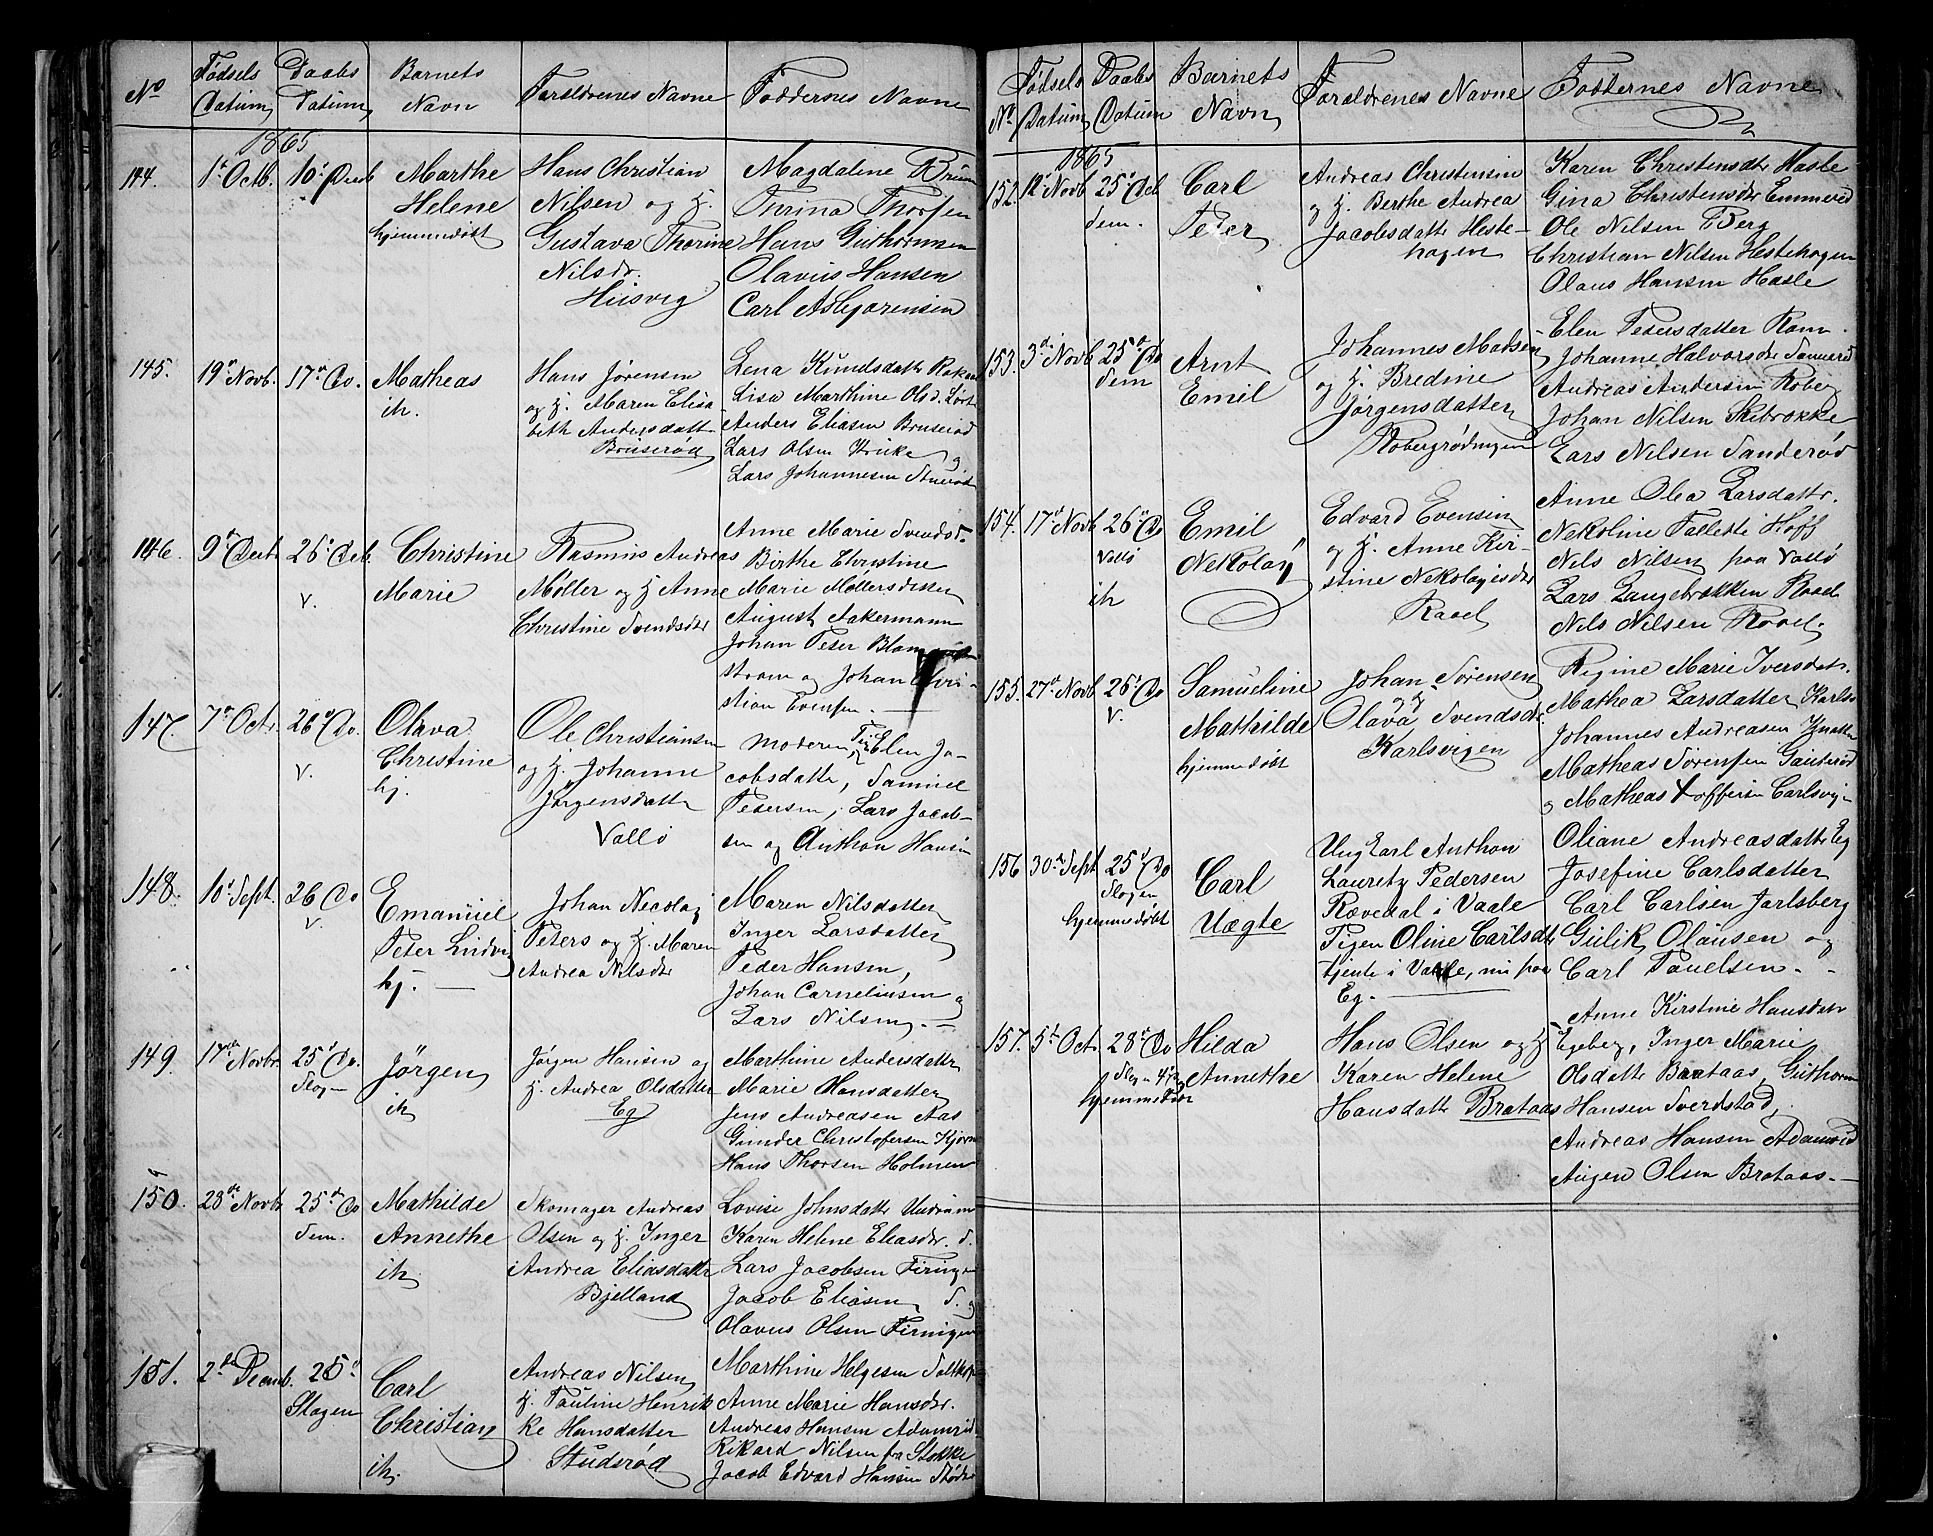 No
Fødsels Datum
Daabs Datum
Barnets Navn
Forældrenes Navne
Faddernes Navne
1865
144.
1ste Octb.
10de Decb
Marthe
Helene
hjemmedøbt
Hans Christian
Nilsen og H.
Gustava Thorine
Nilsdr.
Husvig
Magdalene
Thrina Thorsen
Hans Guthormsen
Olavus Hansen
Carl Asbjørensen
145.
19de Novb.
17de Do.
Matheas
ik.
Hans Jørensen
og H. Maren Elisa
beth Andersdatt
Bruserød
Lena Knudsdatt
Lisa Marthine Olsd.
Anders Eliasen Bruserød
Lars Olsen og
Lars Johannesen
146.
9de Decb
26de Decb.
V.
Christine
Marie
Rasmus Andreas
Møller og H Anne
Christine Svendsdr
Anne Marie Svendsd.
Birthe Christine
Marie Møllers
August Aakermann
Johan Peter Blom
strøm og Johan Chri-
stian Evensen.
147.
7de Octr.
26de Do.
V.
Olava
Christine
hj.
Ole Christiansen
og H. Johanne
Jørgensdatte
Vallø
Moderen Elen Ja-
cobsdatte, Samuel
Petersen, Lars Jacob-
sen og Anthon Hansen
148.
10de Sept.
26 Do
V.
Emanuel
Peter Lindvi
hj.
Johan Necolaj
Peters og H. Maren
Andrea Nilsdr
Maren Nilsdatter
Inger Larsdatter
Peder Hansen,
Johan Corneliusen og
Lars Nilsen.
149.
17de Novbr.
25de Do.
Slagn
Jørgen
ik
Jørgen Hansen og
H. Andrea Olsdatter
Eg
Marthine Andersdatter
Marie Hansdatter
Jens Andreasen Aas
Gunder Christofersen
Hans Thorsen Holmen
150.
28de Novb
25de Do
Sem.
Mathilde
Annethe
ik
Skomager Andreas
Olsen og H. Inger
Andrea Eliasdatte
Bjelland
Lovise Johnsdatte Undrum
Karen Helene Eliasdr. S.
Lars Jacobsen Firingen
Jacob Eliasen S. og
Olavus Olsen Firingen
151.
2den Decmb.
25de
Slagen
Carl
Christian
ik.
Andreas Nilsen
H. Pauline Henrik
ke Hansdatter
Studerød
Marthine Helgesen
Anne Marie Hansdr.
Andreas Hansen Adamrød
Rikard Nilsen fra Stokke
Jacob Edvard Hansen
No
Fødsels Datum
Daabs Datum
Barnets Navn
Forældrenes Navne
Faddernes Navne
1865
152.
12te Novb
25de Decb
Sem.
Carl
Peter
Andreas Christensen
og H. Berthe Andrea
Jacobsdatte Heste-
hagen
Karen Christensdtr Hasle
Gina Christensdtr Emmerød
Ole Nilsen Berg
Christian Nilsen Hestehagen
Olaus Hansen Hasle
153.
3die Novb
25de Do
Sem
Arnt
Emil
Johannes Matsen
og H. Bredine
Jørgensdatter
Robergrødningen
Elen Petersdatter Ram
Johanne Halvorsdr
Andreas Andersen Roberg
Johan Nilsen Skibrokke
Lars Nilsen Sanderød
154.
17de Novb
26de Do
Vallø
ik
Emil
Nekolay
Edvard Evensen
og H. Anne Kir-
stine Nekolayisdr
Raael
Anne Olea Larsdattr.
Nekoline Hoff
Nils Nilsen paa Vallø
Lars Langebrækken Raael
Nils Nilsen Raael.
155.
27de Novb
26de Do
V.
Samueline
Mathilde
hjemmedøbt
Johan Sørensen
og
Olava Svendsdr
Karlsvigen
Regine Marie Iversdatr.
Mathea Larsdatter Karlsv
Johannes Andreasen
Matheas Sørensen
og Matheas Carlsvig
156
30te Sept
25de Do
Slagen
hjemmedøbt
Carl
Uægte
Ung Carl Anthon
Lauritz Pedersen
Rævedal i Vaale
Pigen Oline Carlsdtr
tjente i Vaale, nu paa
Eg.
Oliane Andreasdatte Eg
Josefine Carlsdatter
Carl Carlsen Jarlsberg
Gulik Olausen og
Carl Pauelsen.
157.
5te Oct.
28de Do
Slagn
hjemmedøbt
Hilda
Annethe
Hans Olsen og H
Karen Helene
Hansdatte Brataas
Anne Kirstine Hansdatr
Egeberg, Inger Marie
Olsdatte Brataas, Guthorm
Hansen Sverdstad,
Andreas Hansen Adamrød
Augen Olsen Brataas.